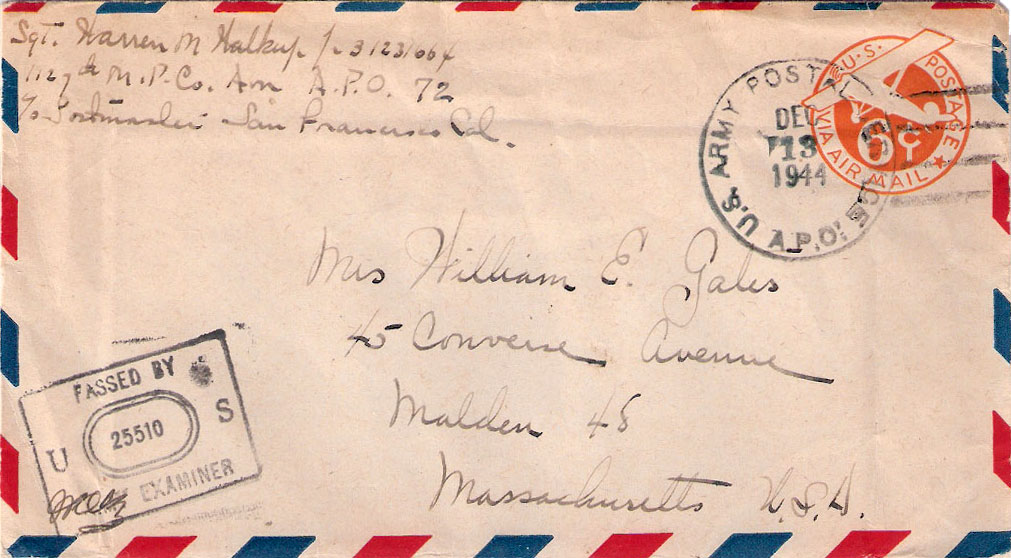 Sgt. Warren M Halkup Jr 31231664
1127th M.P. Co. Avn A.P.O. 72
c/o Postmaster San Francisco Cal.
U.S. ARMY POSTAL SERVICE
A.P.O.
DEC
13
1944
U.S. POSTAGE
6¢
VIA AIR MAIL
Mrs William E. Gales
45 Converse Avenue
Malden 48
Massachusetts U.S.A.
PASSED BY
U 25510 S
EXAMINER